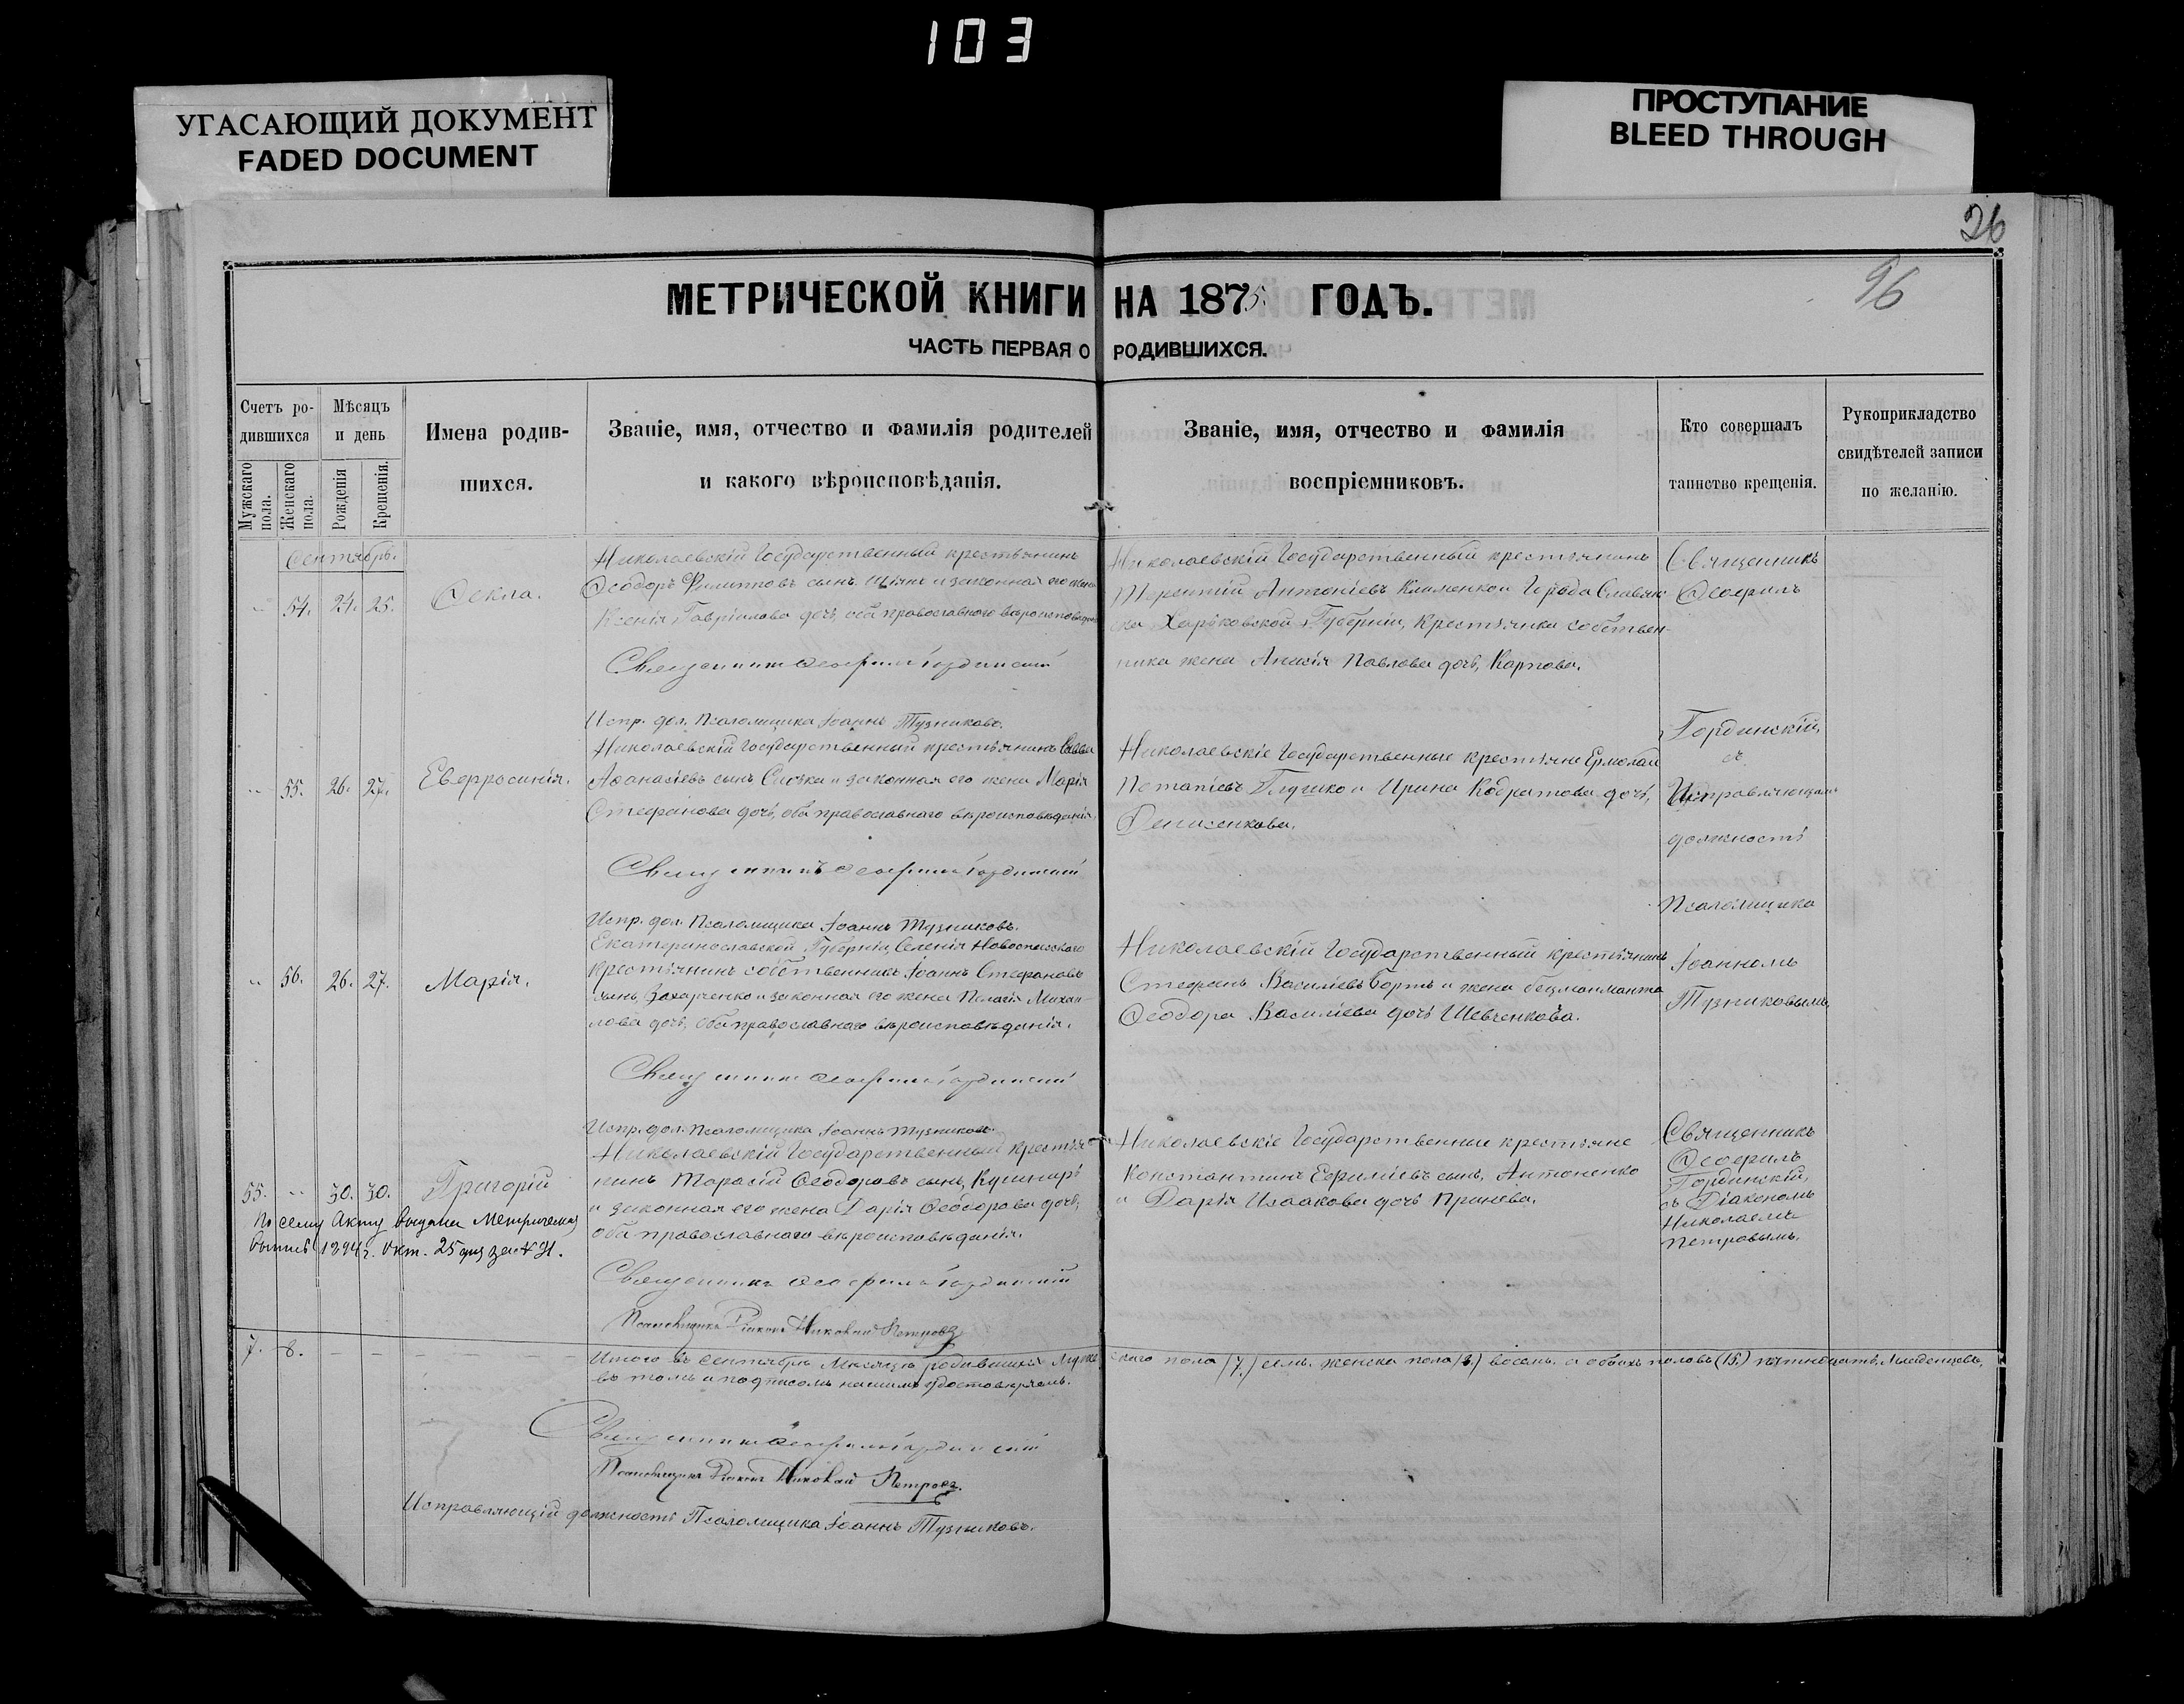 103
УГАСАЮЩИЙ ДОКУМЕНТ
FADED DOCUMENT
ПРОСТУПАНИЕ
BLEED THROUGH
26
96
МЕТРИЧЕСКОЙ КНИГИ НА 1875 ГОДЪ.
ЧАСТЬ ПЕРВАЯ О РОДИВШИХСЯ.
Счетъ ро-
дившихся
Мужскаго пола.
Женскаго пола.
Мѣсяцъ
и день
Рожденія
Крещенія.
Имена родив-
шихся.
Званіе, имя, отчество и фамилія родителей
и какого вѣроисповѣданія.
Званіе, имя, отчество и фамилія
воспріемниковъ.
Кто совершалъ
таинство крещенія.
Рукоприкладство
свидѣтелей записи
по желанію.
Сентябрь.
54. 24. 25.
Ѳекла.
Николаевскій Государственный крестьянинъ
Ѳеодоръ Филипповъ сынъ и законная его жена
Ксенія Гавріилова дочь, оба православнаго вѣроисповѣданія
Священникъ Ѳеофилъ Гординскій
Испр. дол. Псаломщика Іоаннъ Тузниковъ.
Николаевскій Государственный крестьянинъ
Терентій Антоніевъ Клименко и Города Славян-
ска Харьковской Губерніи, Крестьянина собствен-
ника жена Анисія Павлова дочь, Карпова.
Священникъ
Ѳеофилъ
Гординскій,
съ
Исправляющимъ
должность
Псаломщика
Іоанномъ
Тузниковымъ
55. 26. 27.
Евфросинія.
Николаевскій Государственный крестьянинъ Савва
Аѳанасіевъ сынъ и законная его жена Марія
Стефанова дочь, оба православнаго вѣроисповѣданія.
Священникъ Ѳеофилъ Гординскій
Испр. дол. Псаломщика Іоаннъ Тузниковъ.
Николаевскіе Государственные крестьяне Ермолай
Потапіевъ и Ирина Кодратова дочь,
Денисенкова.
56. 26. 27.
Марія.
Екатеринославской Губерніи, Селенія Новоспасскаго
Крестьянинъ собственникъ Іоаннъ Стефановъ
сынъ, Захарченко и законная его жена Пелагія Михаи-
лова дочь, оба православнаго вѣроисповѣданія.
Священникъ Ѳеофилъ Гординскій
Испр. дол. Псаломщика Іоаннъ Тузниковъ.
Николаевскій Государственный крестьянинъ
Стефанъ Василіевъ Бортъ и жена
Ѳеодора Василіева дочь Шевченкова.
55. 30. 30.
Григорій
По сему Акту выдана Метрическая
выпись 1894 г. Окт. 25 дня за № 31.
Николаевскій Государственный крестья-
нинъ Тарасій Ѳеодоровъ сынъ, Кушниръ
и законная его жена Дарія Ѳеодорова дочь,
оба православнаго вѣроисповѣданія.
Священникъ Ѳеофилъ Гординскій
Псаломщикъ Діаконъ Николай Петровъ
Николаевскіе Государственные крестьяне
Константинъ Ефиміевъ сынъ, Антоненко
и Дарія Исаакова дочь Принева.
Священникъ
Ѳеофилъ
Гординскій,
съ Діакономъ
Николаемъ
Петровымъ.
7. 8.
Итого въ Сентябрѣ Мѣсяцѣ родившихся Мужескаго пола (7.) семь. женска пола (8.) восемь. а обоихъ половъ (15.) пятнадцать Младенцевъ,
въ томъ и подписомъ нашимъ удостовѣряемъ.
Священникъ Ѳеофилъ Гординскій
Псаломщикъ Діаконъ Николай Петровъ.
Исправляющій должность Псаломщика Іоаннъ Тузниковъ.